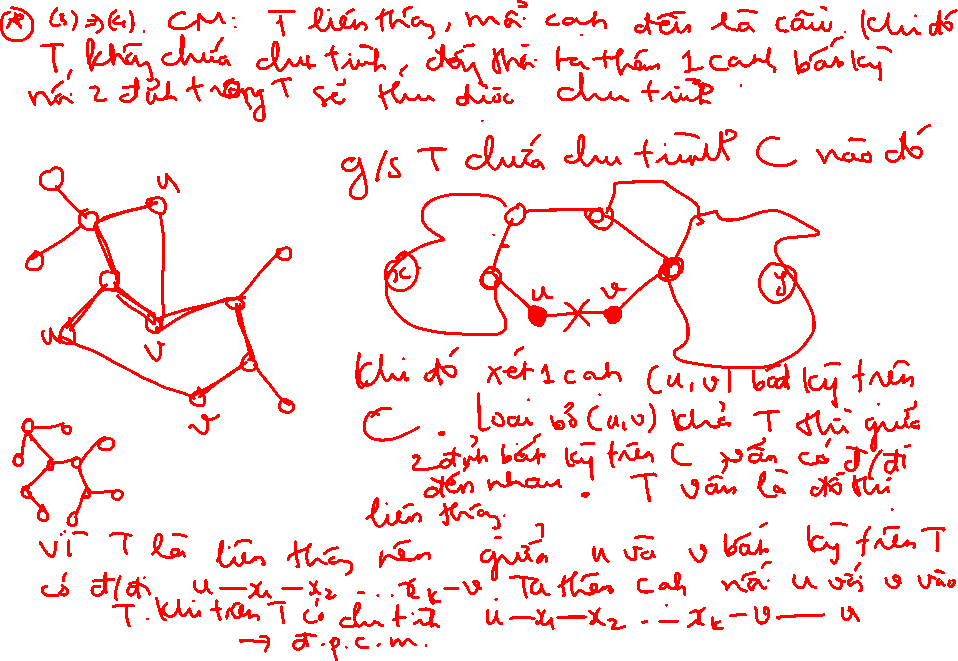 (*) (3) => (4). CM: T liên thông, mỗi cạnh đều là cầu. Khi đó
T không chứa chu trình, đồng thời ta thêm 1 cạnh bất kỳ
nối 2 đỉnh trong T sẽ thu được chu trình
g/s T chứa chu trình C nào đó
u
v
u
v
x
u
v
y
Khi đó xét 1 cạnh (u,v) bất kỳ trên
C. Loại bỏ (u,v) khỏi T thì giữa
2 đỉnh bất kỳ trên C vẫn có đ/đi
đến nhau. T vẫn là đồ thị
liên thông.
Vì T là liên thông nên giữa u và v bất kỳ trên T
có đ/đi u—x₁—x₂ ... x_k—v. Ta thêm cạnh nối u với v vào
T. Khi trên T có chu trình u—x₁—x₂ ... x_k—v—u
→ đ.p.c.m.